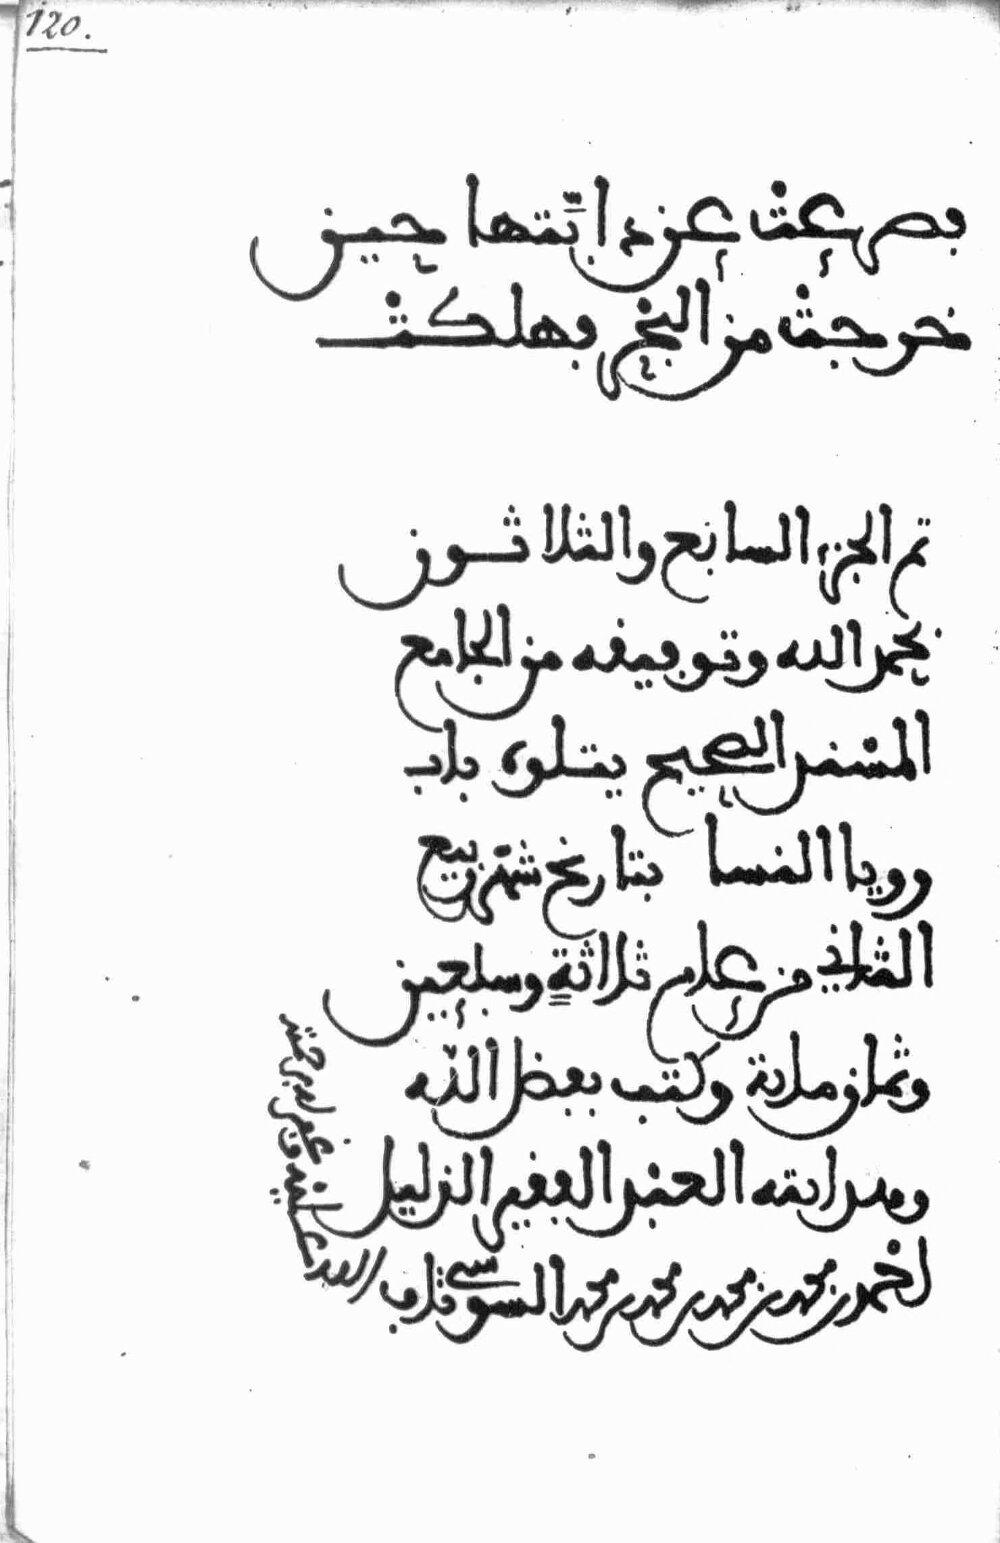 120.
فصرعت عن دابتها حين
خرجت من البحر فهلكت
تم الجزء السابع والثلاثون
بحمد الله وتوفيقه من الجامع
المسند الصحيح يتلوه باب
رويا النسا بتاريخ شهر ربيع
الثاني من عام ثلاثة وسبعين
وثمان ماية وكتب بفضل الله
العبد الفقير الذليل
احمد بن محمد بن محمد بن محمد بن محمد السوسي تاب
الله عليه